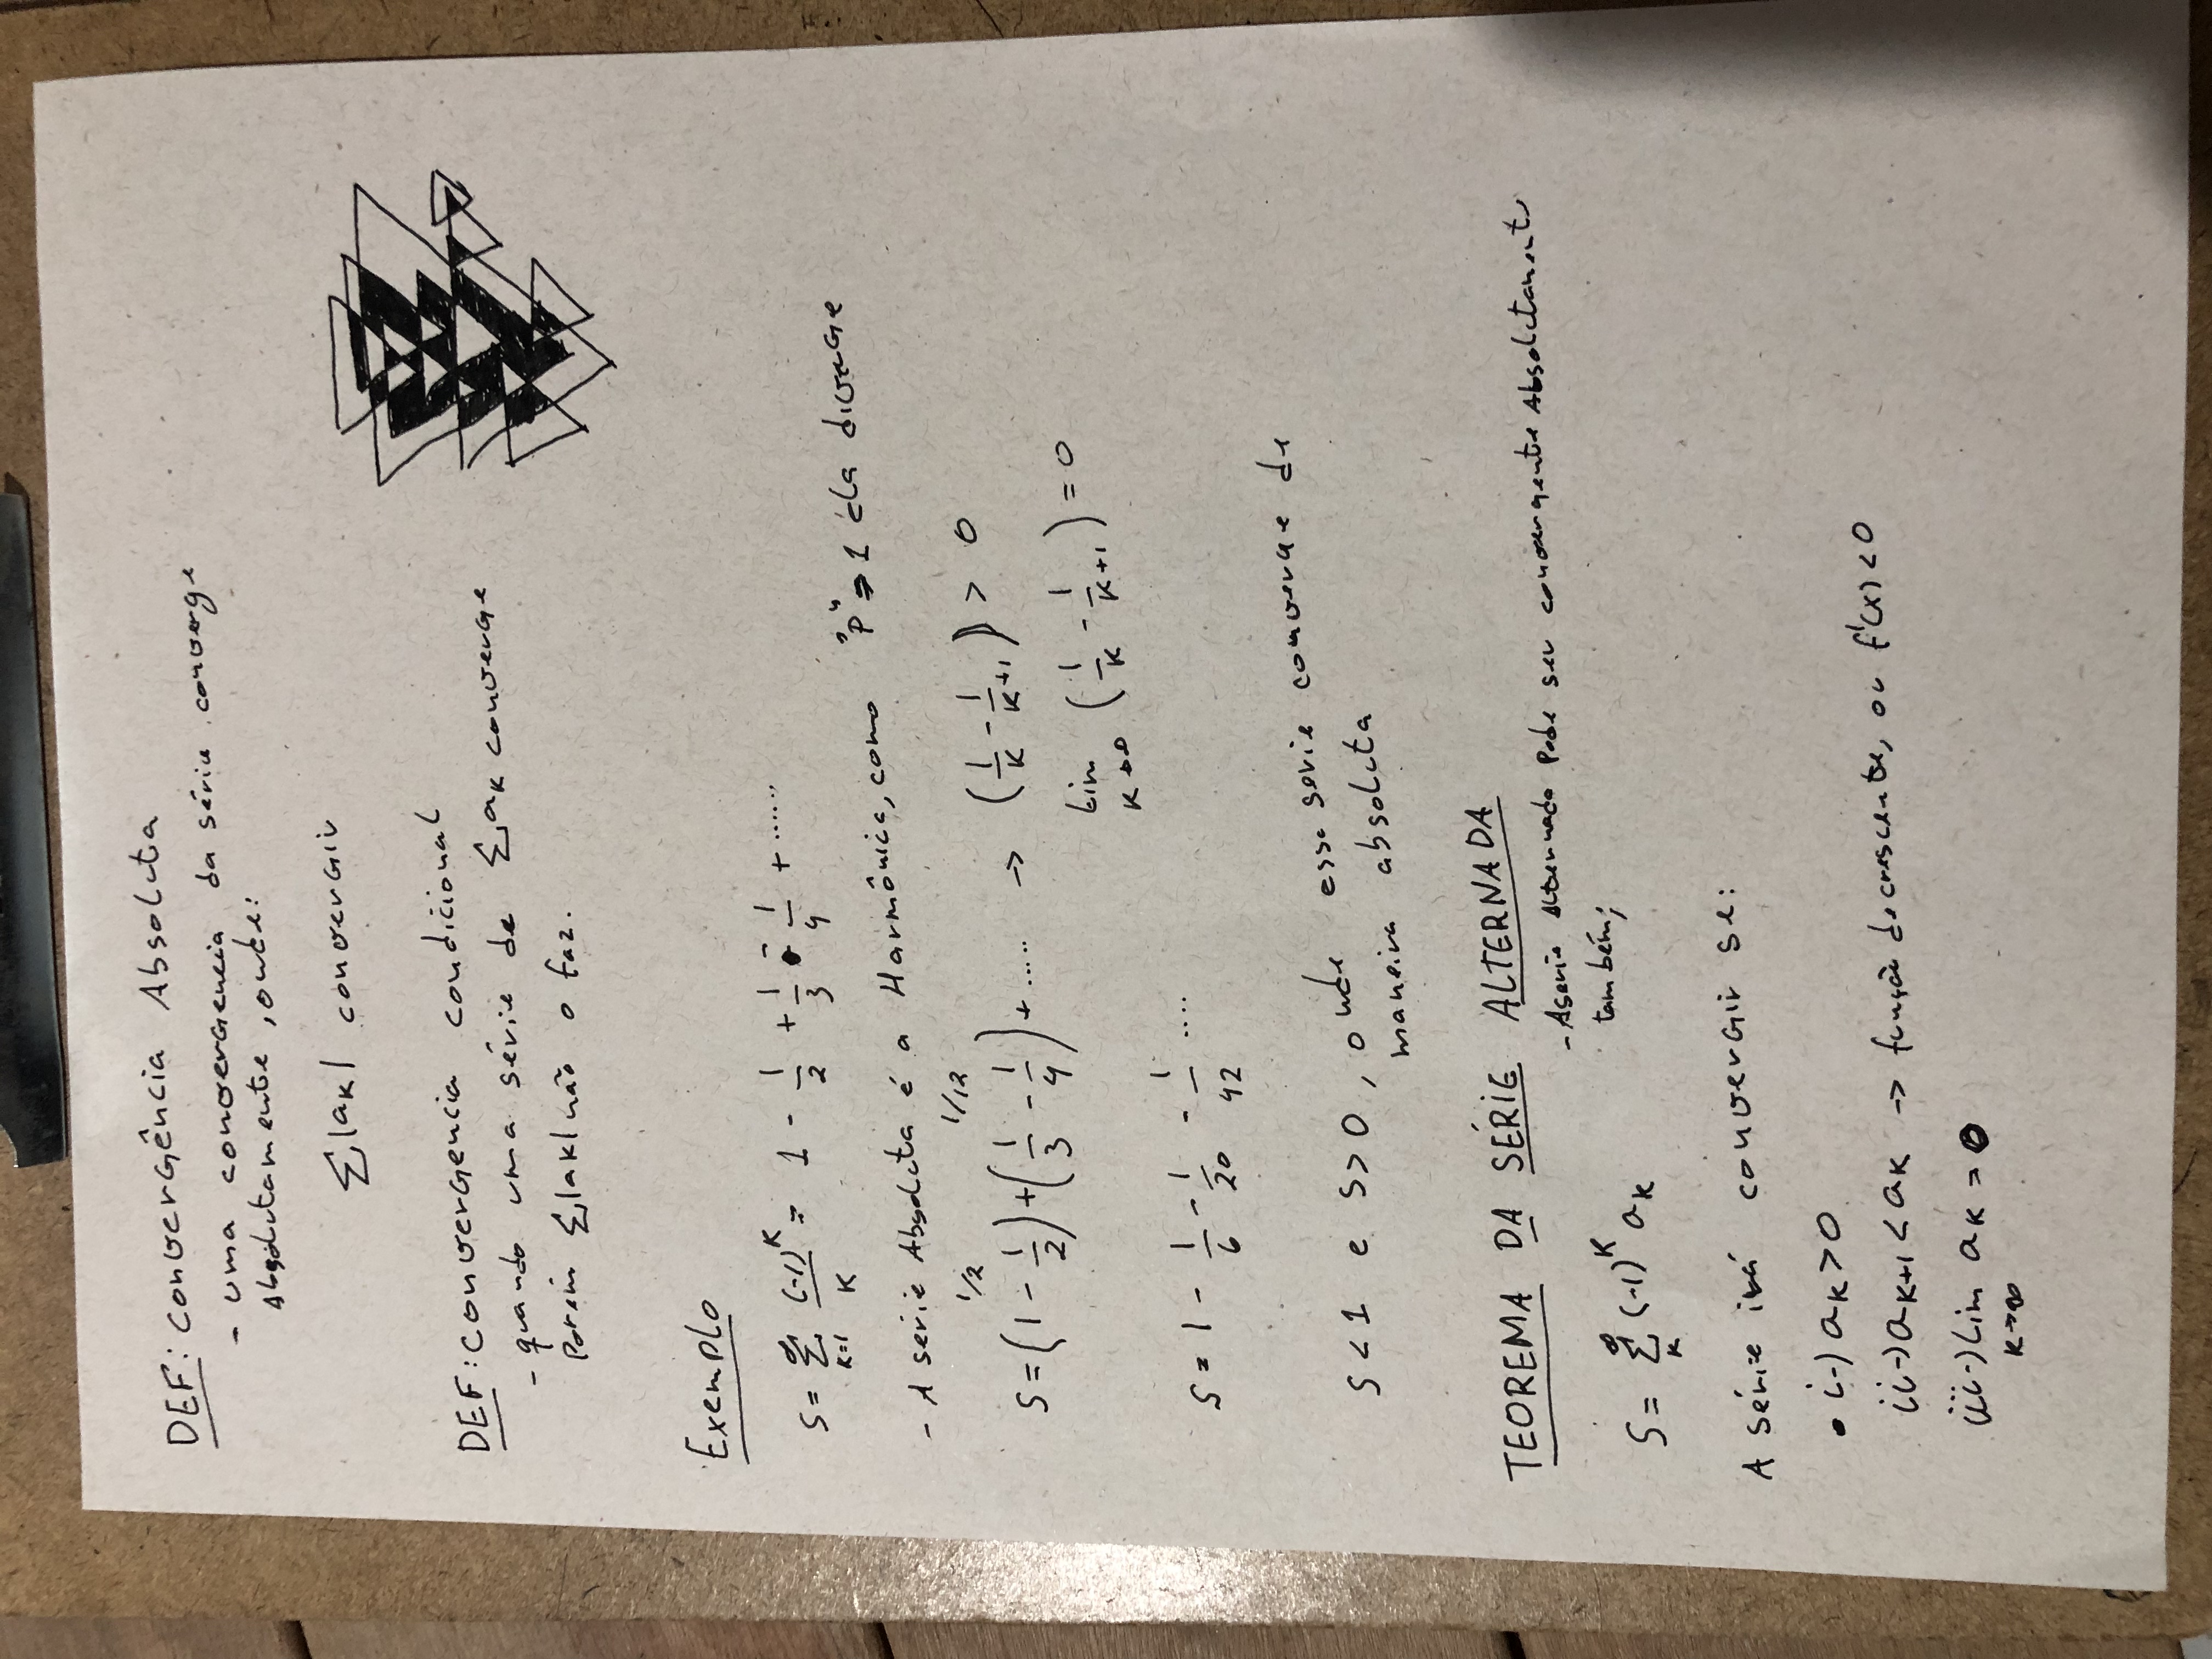 DEF: convergência Absoluta
- uma convergencia da série converge
Absolutamente, onde:
Σ|aK| convergir
DEF: convergencia condicional
- quando uma série de Σ aK converge
Porém Σ|aK| não o faz.
Exemplo
S = Σ_{K=1}^{∞} (-1)^K / K = 1 - 1/2 + 1/3 - 1/4 + ......
- A serie Absoluta é a Harmônica, como "P" = 1 ela diverge
1/2 1/12
S = (1 - 1/2) + (1/3 - 1/4) + ..... → (1/K - 1/K+1) > 0
Lim K→∞ (1/K - 1/K+1) = 0
S = 1 - 1/6 - 1/20 - 1/42 ....
S < 1 e S > 0, onde essa serie converge de
maneira absoluta
TEOREMA DA SÉRIE ALTERNADA
- A serie Alternada Pode ser convergente Absolutamente
também;
S = Σ_{K}^{∞} (-1)^K aK
A série irá convergir se:
• i-) aK > 0
ii-) aK+1 < aK → função decrescente, ou f'(x) < 0
iii-) Lim K→∞ aK = 0